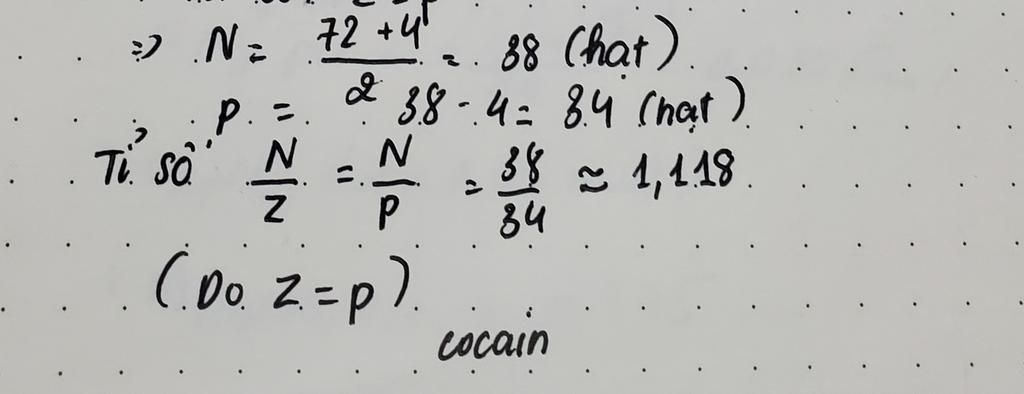 => N = 72 + 4 / 2 = 38 (hạt)
p = 38 - 4 = 34 (hạt)
Tỉ số N/Z = N/p = 38/34 ≈ 1,118
(Do Z = p)
cocain